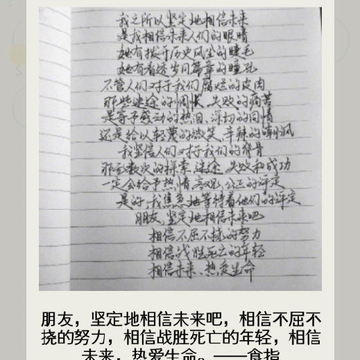 我之所以坚定地相信未来
是我相信未来人们的眼睛
她有拨开历史风尘的睫毛
她有看透岁月篇章的瞳孔
不管人们对于我们腐烂的皮肉
那些迷途的惆怅、失败的痛苦
是寄予感动的热泪、深切的同情
还是给以轻蔑的微笑、辛辣的嘲讽
我坚信人们对于我们的脊骨
那无数次的探索、迷途、失败和成功
一定会给予热情、客观、公正的评定
是的,我焦急地等待着他们的评定
朋友,坚定地相信未来吧
相信不屈不挠的努力
相信战胜死亡的年轻
相信未来、热爱生命
朋友,坚定地相信未来吧,相信不屈不
挠的努力,相信战胜死亡的年轻,相信
未来,热爱生命。——食指